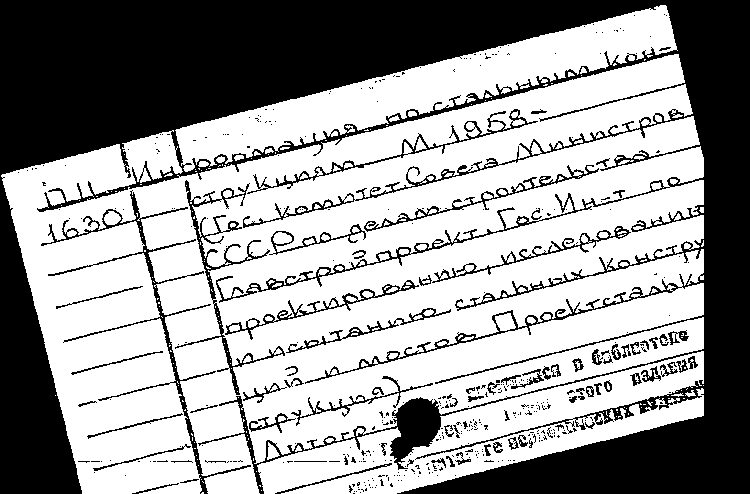 П11 Информация по стальным кон-
1630 струкциям. М., 1958-
(Гос. комитет Совета Министров
СССР по делам строительства.
Главстройпроект. Гос. Ин-т по
проектированию, исследованию
и испытанию стальных констру
ций и мостов Проектсталько
струкция).
Литогр.
в библиотеке
этого издания
периодических изданий